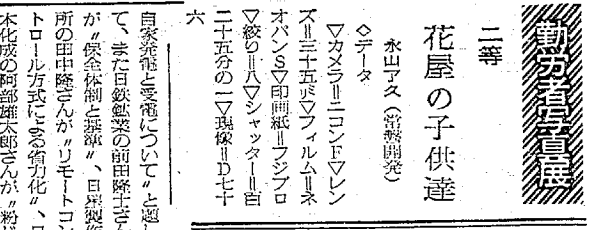 勤労者写真展
二等
花屋の子供達
永山ア久(常磐開発)
◇データ
▽カメラ=ニコンF▽レン
ズ=三十五ミリ▽フィルム=ネ
オパンS▽印画紙=フジブロ
▽絞り=八▽シャッター=百
二十五分の一▽現像=D七十
六
自家発電と受電について〃と題し
て、また日鉄鉱業の前田隆士さん
が〃保全体制と基準〃、日星製
所の田中隆さんが〃リモートコン
トロール方式による省力化〃、
木化成の阿部雄太郎さんが〃粉